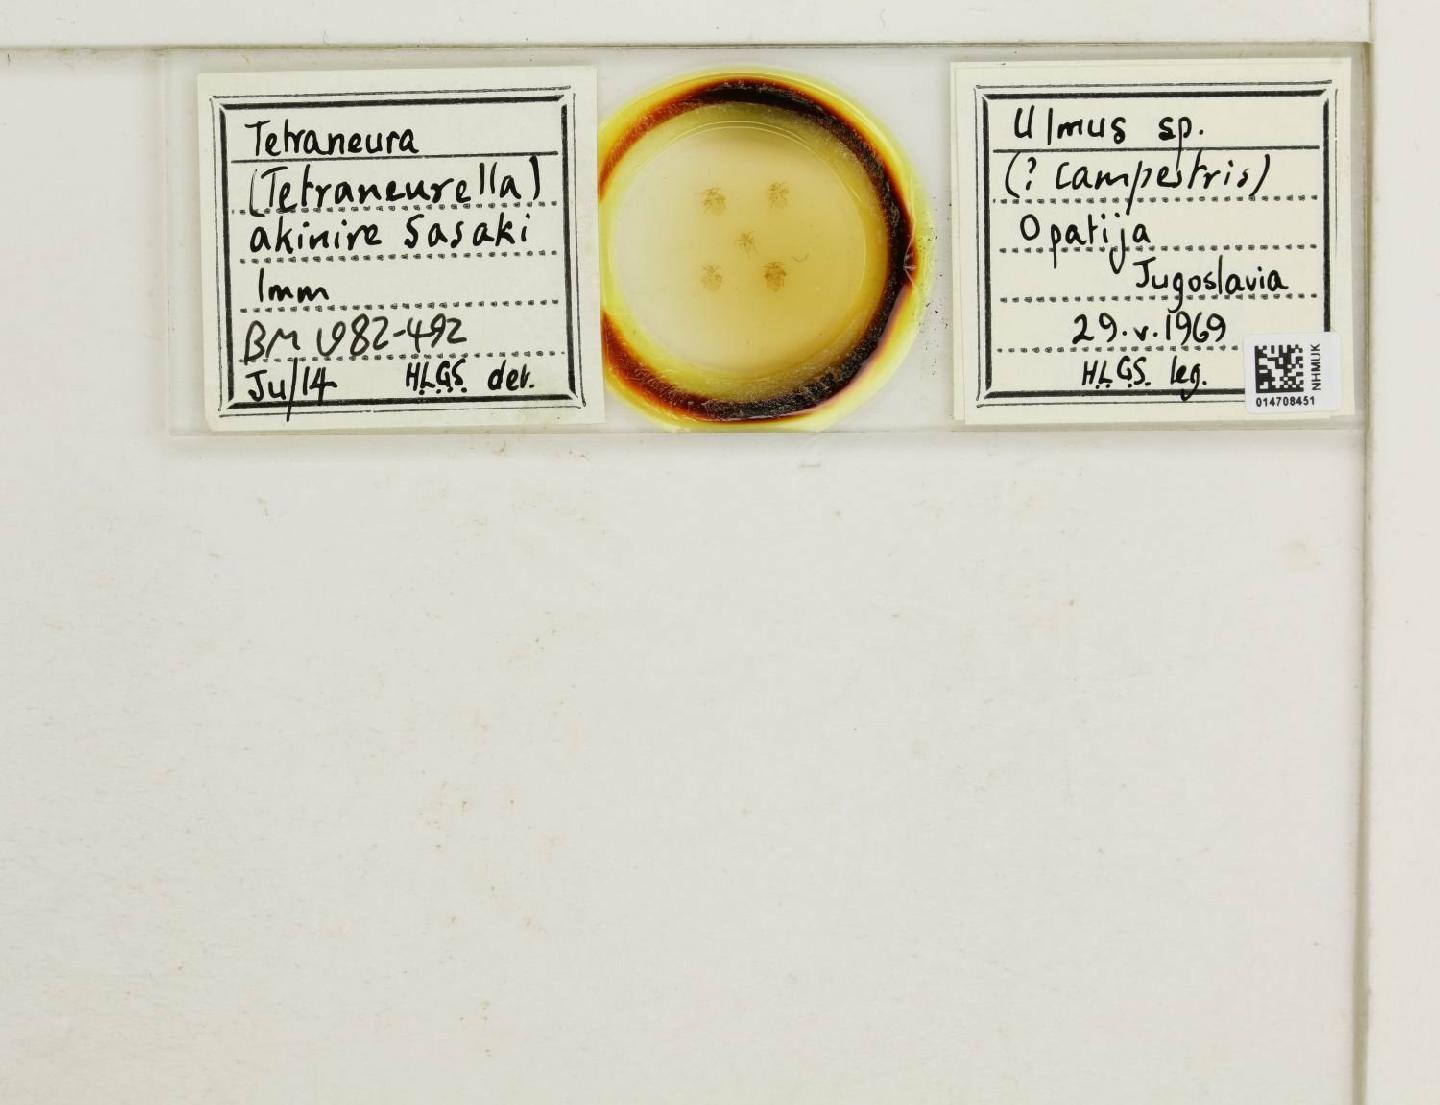 Tetraneura
(Tetraneurella)
akinire Sasaki
Imm
BM 1982-492
Ju/14 H.L.G.S. det.
Ulmus sp.
(? campestris)
Opatija
Jugoslavia
29.v.1969
H.L.G.S. leg.
NHMUK
014708451